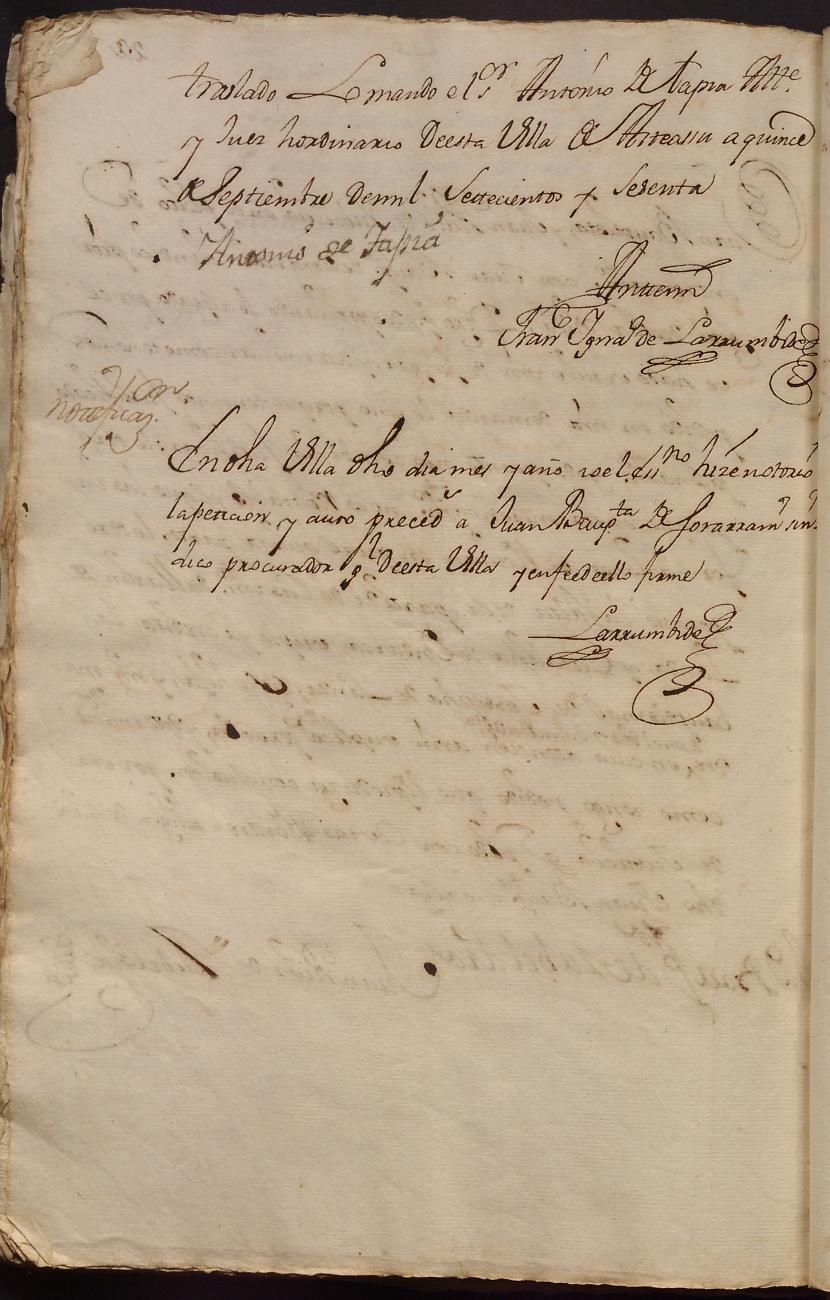 traslado Lo mando el s.or Antonio de Tapia Alle
y Juez hordinario deesta Villa de Asteassu a quince
de Septiembre demil Settecientos y Sesenta
Antonio de Tapia
Antemi
Fran.co Ign.o de Larrumbide
notificaz.on
En dha Villa dho dia mes y año yo el ess.no hize notorio
la peticion y auto preced.te a Juan Baup.ta de Sorarrain sin
dico procurador g.l deesta Villa y en fee de ello firme
Larrumbide